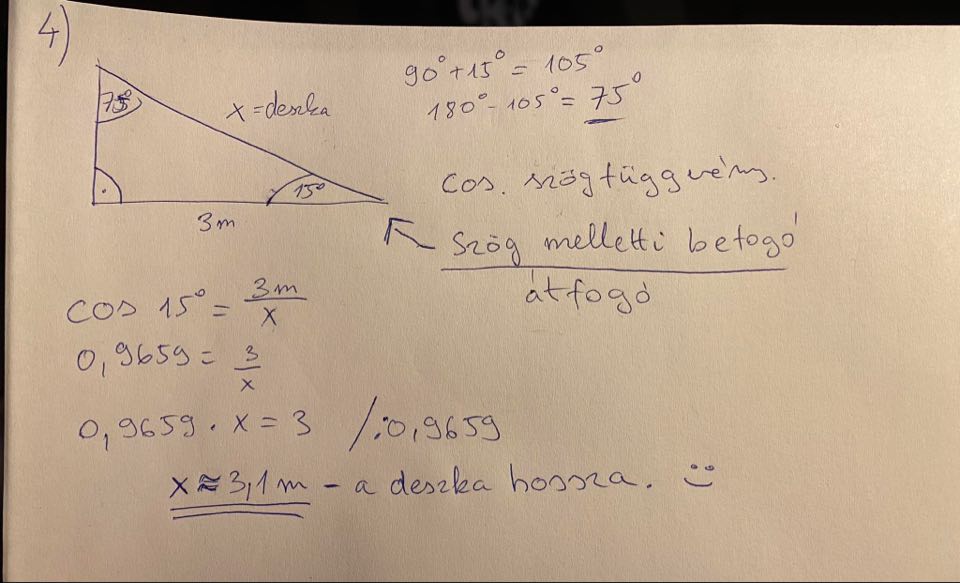 4)
90° + 15° = 105°
180° - 105° = 75°
75°
x = deszka
15°
3m
cos. szögfüggvény.
Szög melletti befogó
átfogó
cos 15° = 3m / x
0,9659 = 3 / x
0,9659 · x = 3 /:0,9659
x ≈ 3,1 m - a deszka hossza. :)